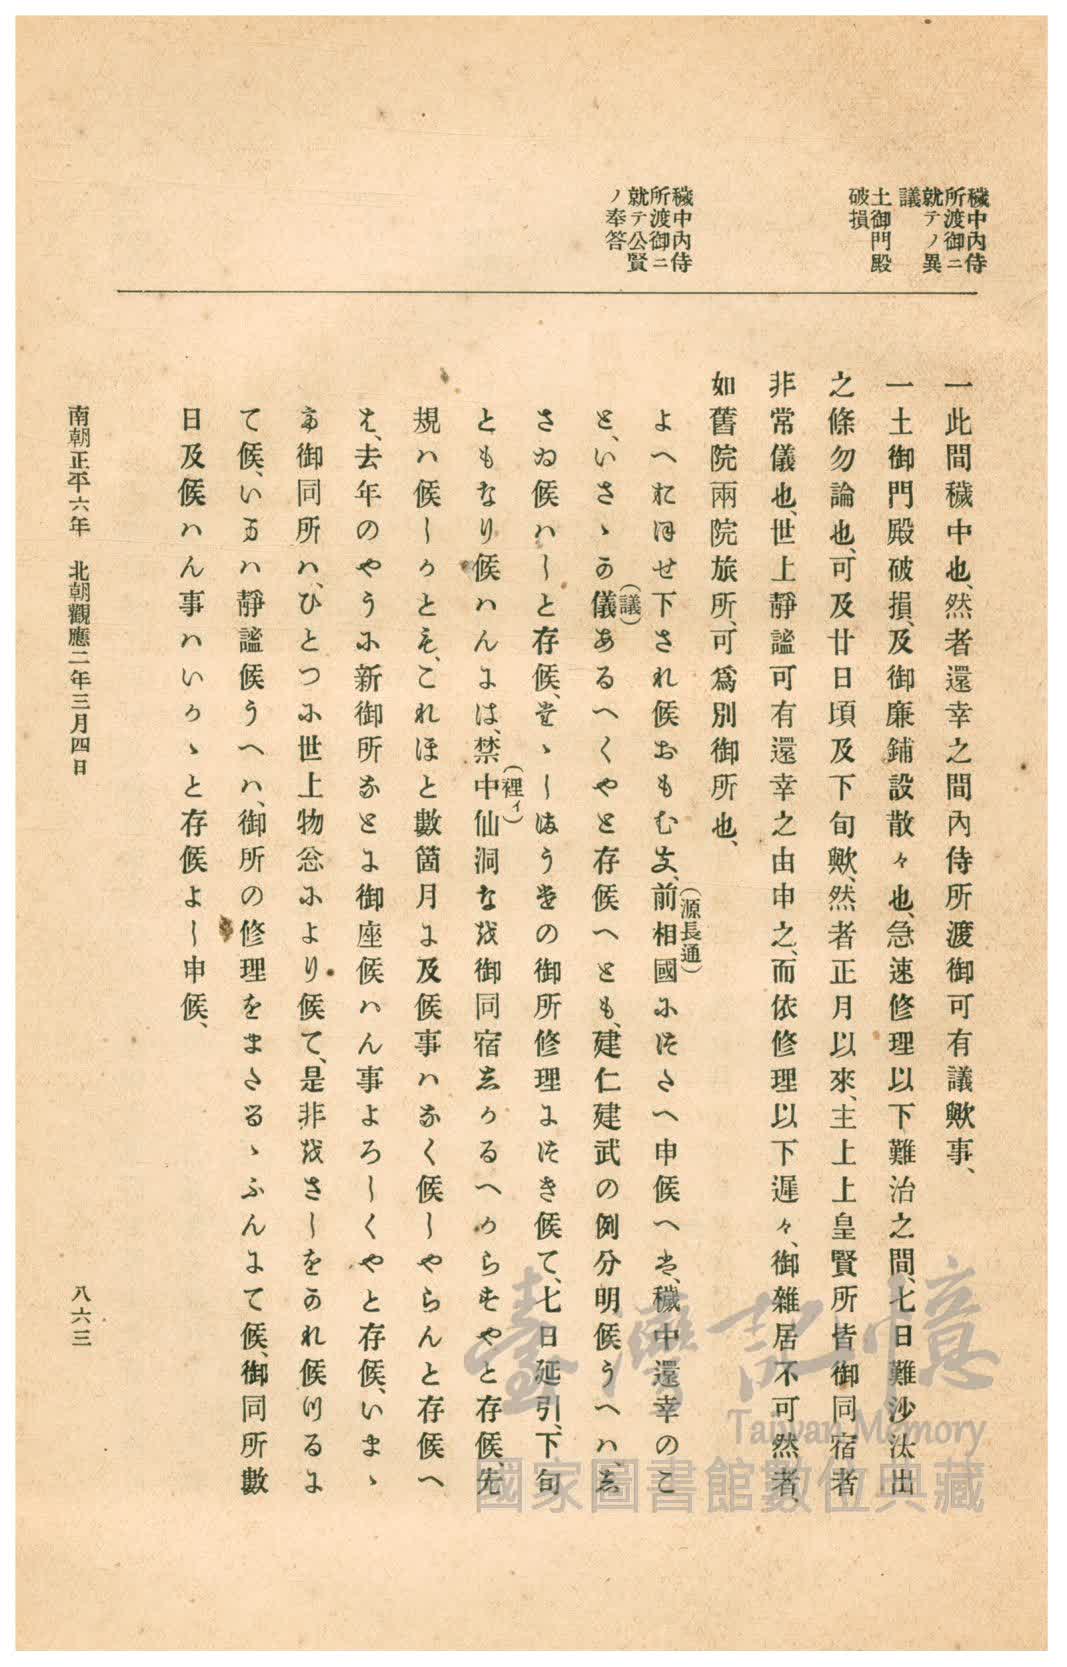 穢中內侍
所渡御ニ
就テノ異
議
土御門殿
破損
穢中內侍
所渡御ニ
就テ公賢
ノ奉答
一此間穢中也、然者還幸之間內侍所渡御可有議歟事、
一土御門殿破損、及御廉鋪設散々也、急速修理以下難治之間、七日難沙汰出
之條勿論也、可及廿日頃及下旬歟、然者正月以來、主上上皇賢所皆御同宿者
非常儀也、世上靜謐可有還幸之由申之、而依修理以下遲々、御雜居不可然者、
如舊院兩院旅所、可爲別御所也、
よへおほせ下され候おもむき、前相國につたへ申候へは、穢中還幸のこ
(源長通)
と、いさゝの儀あるへくやと存候へとも、建仁建武の例分明候うへハ、し
(議)
さゐ候ハしと存候、たゝしはうたの御所修理につき候て、七日延引、下旬
ともなり候ハんには、禁中仙洞なを御同宿しかるへからすやと存候、先
(裡イ)
規ハ候しかとも、これほと數箇月に及候事ハなく候しやらんと存候へ
は、去年のやうに新御所なとに御座候ハん事よろしくやと存候、いまゝ
て御同所ハ、ひとつに世上物忩により候て、是非をさしをかれ候つるに
て候、いまハ靜謐候うへハ、御所の修理をまさるゝふんにて候、御同所數
日及候ハん事ハいかゝと存候よし申候、
南朝正平六年 北朝觀應二年三月四日
八六三
臺灣記憶
Taiwan Memory
國家圖書館數位典藏